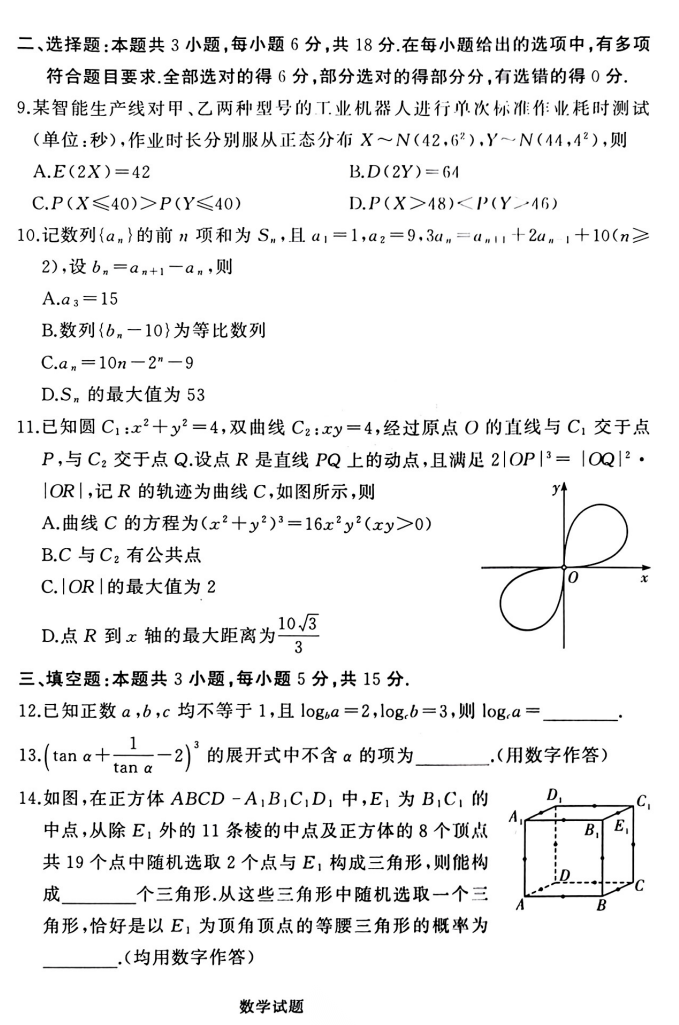 二、选择题:本题共 3 小题,每小题 6 分,共 18 分.在每小题给出的选项中,有多项
符合题目要求.全部选对的得 6 分,部分选对的得部分分,有选错的得 0 分.
9.某智能生产线对甲、乙两种型号的工业机器人进行单次标准作业耗时测试
(单位:秒),作业时长分别服从正态分布 X～N(42,6²),Y～N(44,4²),则
A.E(2X)=42 B.D(2Y)=64
C.P(X≤40)>P(Y≤40) D.P(X>48)<P(Y>46)
10.记数列{aₙ}的前 n 项和为 Sₙ,且 a₁=1,a₂=9,3aₙ=aₙ₊₁+2aₙ₋₁+10(n≥
2),设 bₙ=aₙ₊₁-aₙ,则
A.a₃=15
B.数列{bₙ-10}为等比数列
C.aₙ=10n-2ⁿ-9
D.Sₙ 的最大值为 53
11.已知圆 C₁:x²+y²=4,双曲线 C₂:xy=4,经过原点 O 的直线与 C₁ 交于点
P,与 C₂ 交于点 Q.设点 R 是直线 PQ 上的动点,且满足 2|OP|³=|OQ|²·
|OR|,记 R 的轨迹为曲线 C,如图所示,则
A.曲线 C 的方程为(x²+y²)³=16x²y²(xy>0)
B.C 与 C₂ 有公共点
C.|OR|的最大值为 2
D.点 R 到 x 轴的最大距离为 10√3/3
y
O
x
三、填空题:本题共 3 小题,每小题 5 分,共 15 分.
12.已知正数 a,b,c 均不等于 1,且 log_b a=2,log_c b=3,则 log_c a=________.
13.(tan α+1/tan α-2)³ 的展开式中不含 α 的项为________.(用数字作答)
14.如图,在正方体 ABCD-A₁B₁C₁D₁ 中,E₁ 为 B₁C₁ 的
中点,从除 E₁ 外的 11 条棱的中点及正方体的 8 个顶点
共 19 个点中随机选取 2 个点与 E₁ 构成三角形,则能构
成________个三角形.从这些三角形中随机选取一个三
角形,恰好是以 E₁ 为顶角顶点的等腰三角形的概率为
________.(均用数字作答)
D₁
C₁
A₁
B₁
E₁
D
C
A
B
数学试题